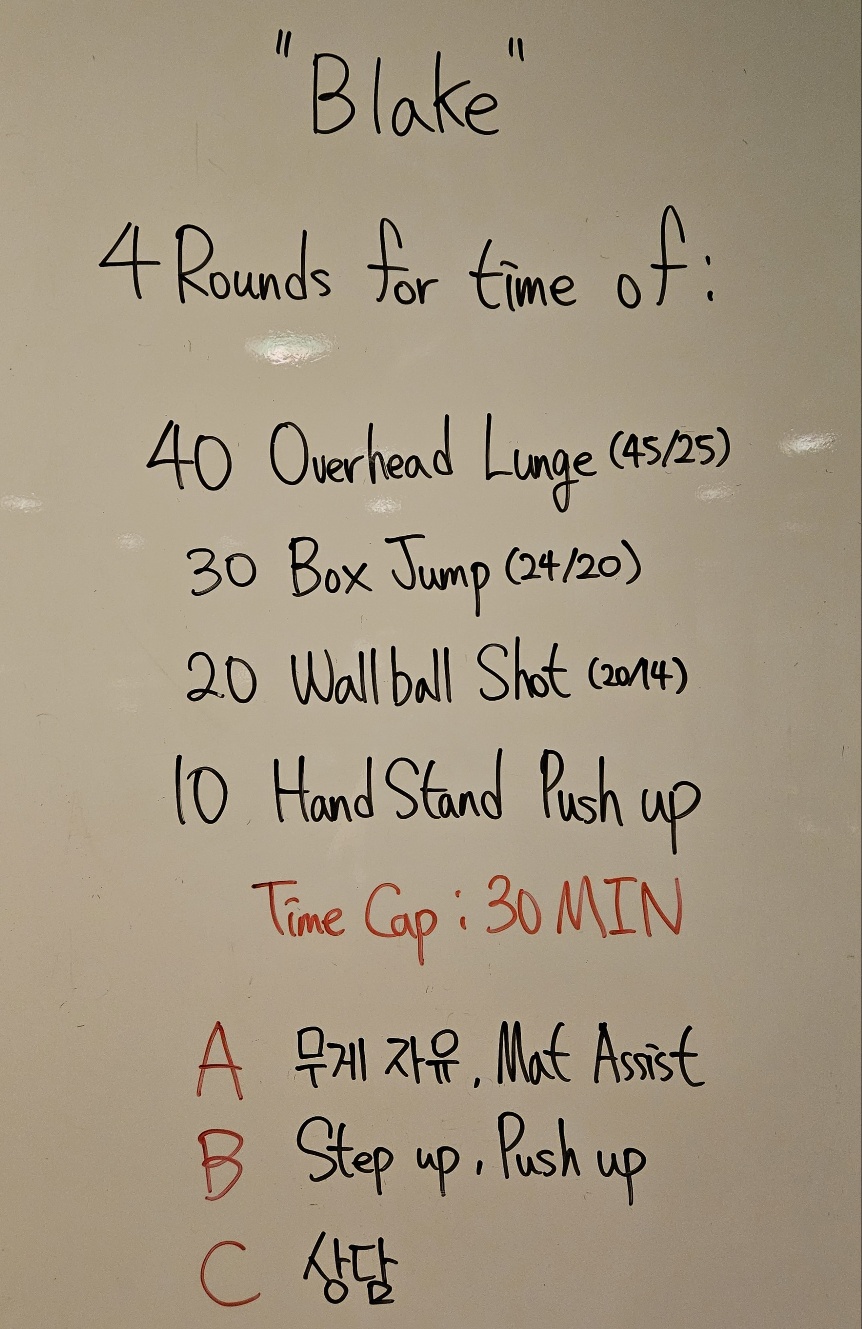 "Blake"
4 Rounds for time of:
40 Overhead Lunge (45/25)
30 Box Jump (24/20)
20 Wallball Shot (20/14)
10 HandStand Push up
Time Cap : 30 MIN
A 무게 자유, Mat Assist
B Step up, Push up
C 상담